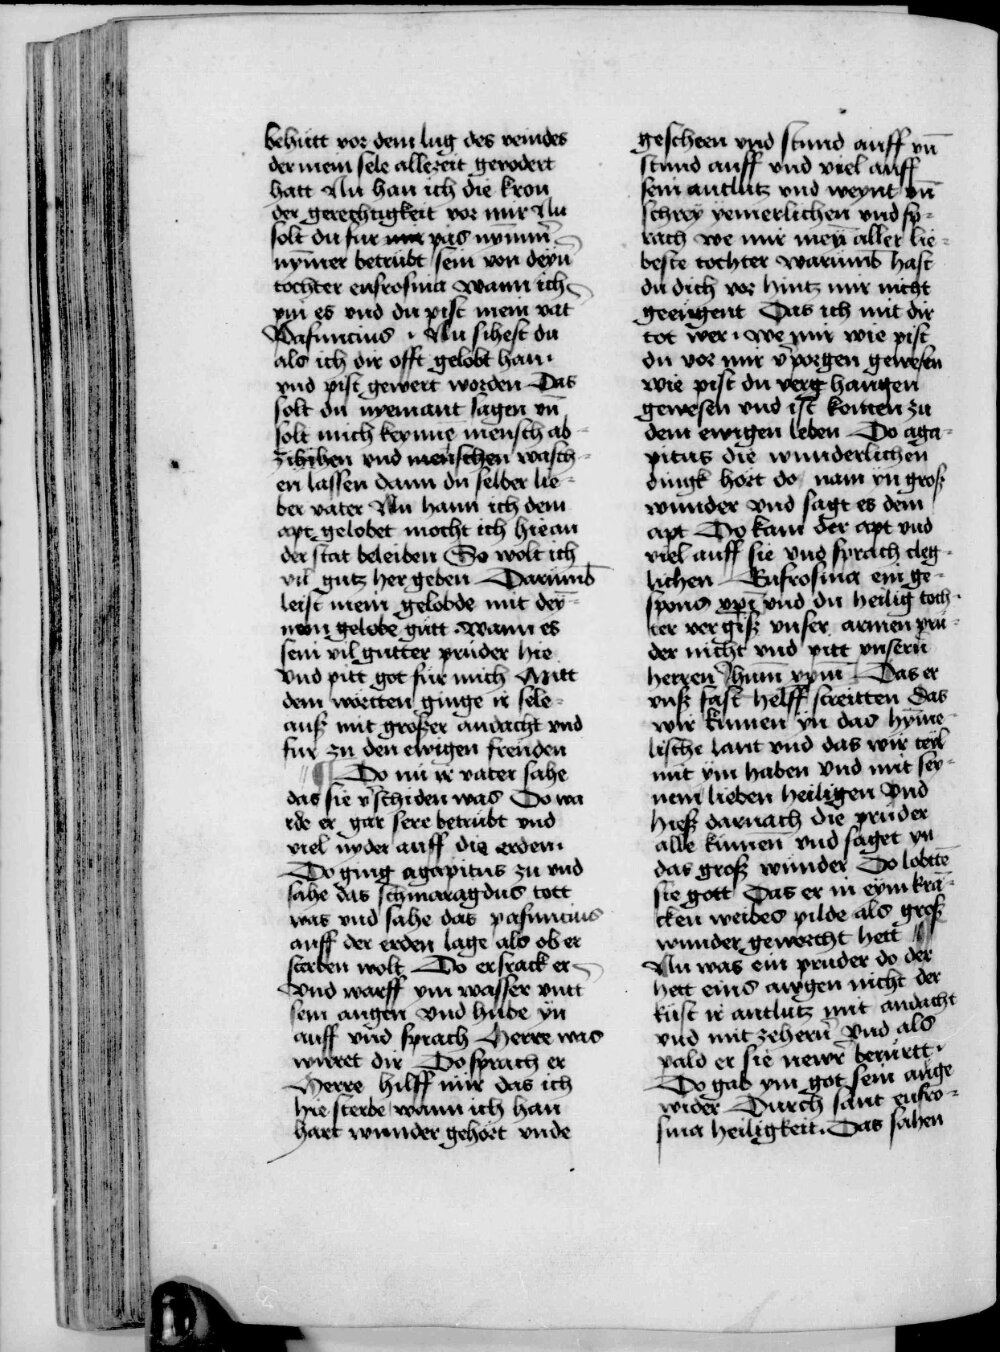 behutt vor dem lug des veindes
der mein sele allezeit gevodert
hatt Nu han ich die kron
der gerechtigkeit vor mir Nu
solt du fur mir pas nymm̄
nym̄er betrubt sein von deyn̄
tochter eufrosina wann ich
pin es und du pist mein vat
Pafuncius · Nu sihest du
als ich dir offt gelobt han
und pist gewert worden Das
solt du nyemant sagen vn̄
solt mich keynne mensch ab
zihihen und menschen wasch-
en lassen dann du selber lie-
ber vater Nu hann ich dem
apt gelobet mocht ich hie an
der stat beleiben So wolt ich
vil gutz her geben Darumb
leist mein gelobde mit dey-
nem gelobe gutt · wann es
sein vil gutter pruder hie
und pitt got fur mich Mitt
dem wortten ginge ir sele
auß mit großer andacht und
fur zu den ewigen freuden
Do nu ir vater sahe
das sie v̄schiden was Do wa
rde er gar sere betrubt und
viel nyder auff die erdem
Do ging agapitus zu und
sahe das schmaragdus tott
was und sahe das pafuncius
auff der erden lage als ob er
sterben wolt Do ersrack er
und warff ym wasser untt
sein augen und hube yn
auff und sprach Herre was
wirret dir Do sprach er
Herre hilff mir das ich
hie sterbe wann ich han
hart wunder gehort unde
gescheen und stund auff vn̄
stund auff und viel auff
sein antlutz und weynt vn̄
schrey yemerlichen und sp-
rach we mir meyn̄ aller lie-
beste tochter warumb hast
du dich vor hintz mir nicht
geeugent Das ich mit dir
tot wer · we mir wie pist
du vor mir v̄porgen gewesen
wie pist du verg hangen
gewesen und ist komen zu
dem ewigen leben Do aga-
pitus die wunderlichen
dingk hort do nam yn groß
wunder und sagt es dem
apt Do kam der apt und
viel auff sie und sprach cleg-
lichen Eufrosina ein ge-
spons xp̄i und du heilig toch-
ter vergiß unser armen pru-
der nicht und pitt unsern
herren Jhm̄ xpm̄ Das er
unß fast helff streitten das
wir kumen yn das hyme-
lische lant und das wir teyl
mit ym haben und mit sey-
nem lieben heiligen und
hieß darnach die pruder
alle kumen und saget yn
das groß wunder Do lobtte
sie gott Das er in eym krā-
cken weibes pilde als groß
wunder geworcht hett
Nu was ein pruder do der
hett eins awgen nicht der
kust ir antlutz mit andacht
und mit zehern und als
pald er sie newr berurtt
Do gab ym got sein auge
wider Durch sant eufro-
sina heiligkeit. Das sahen